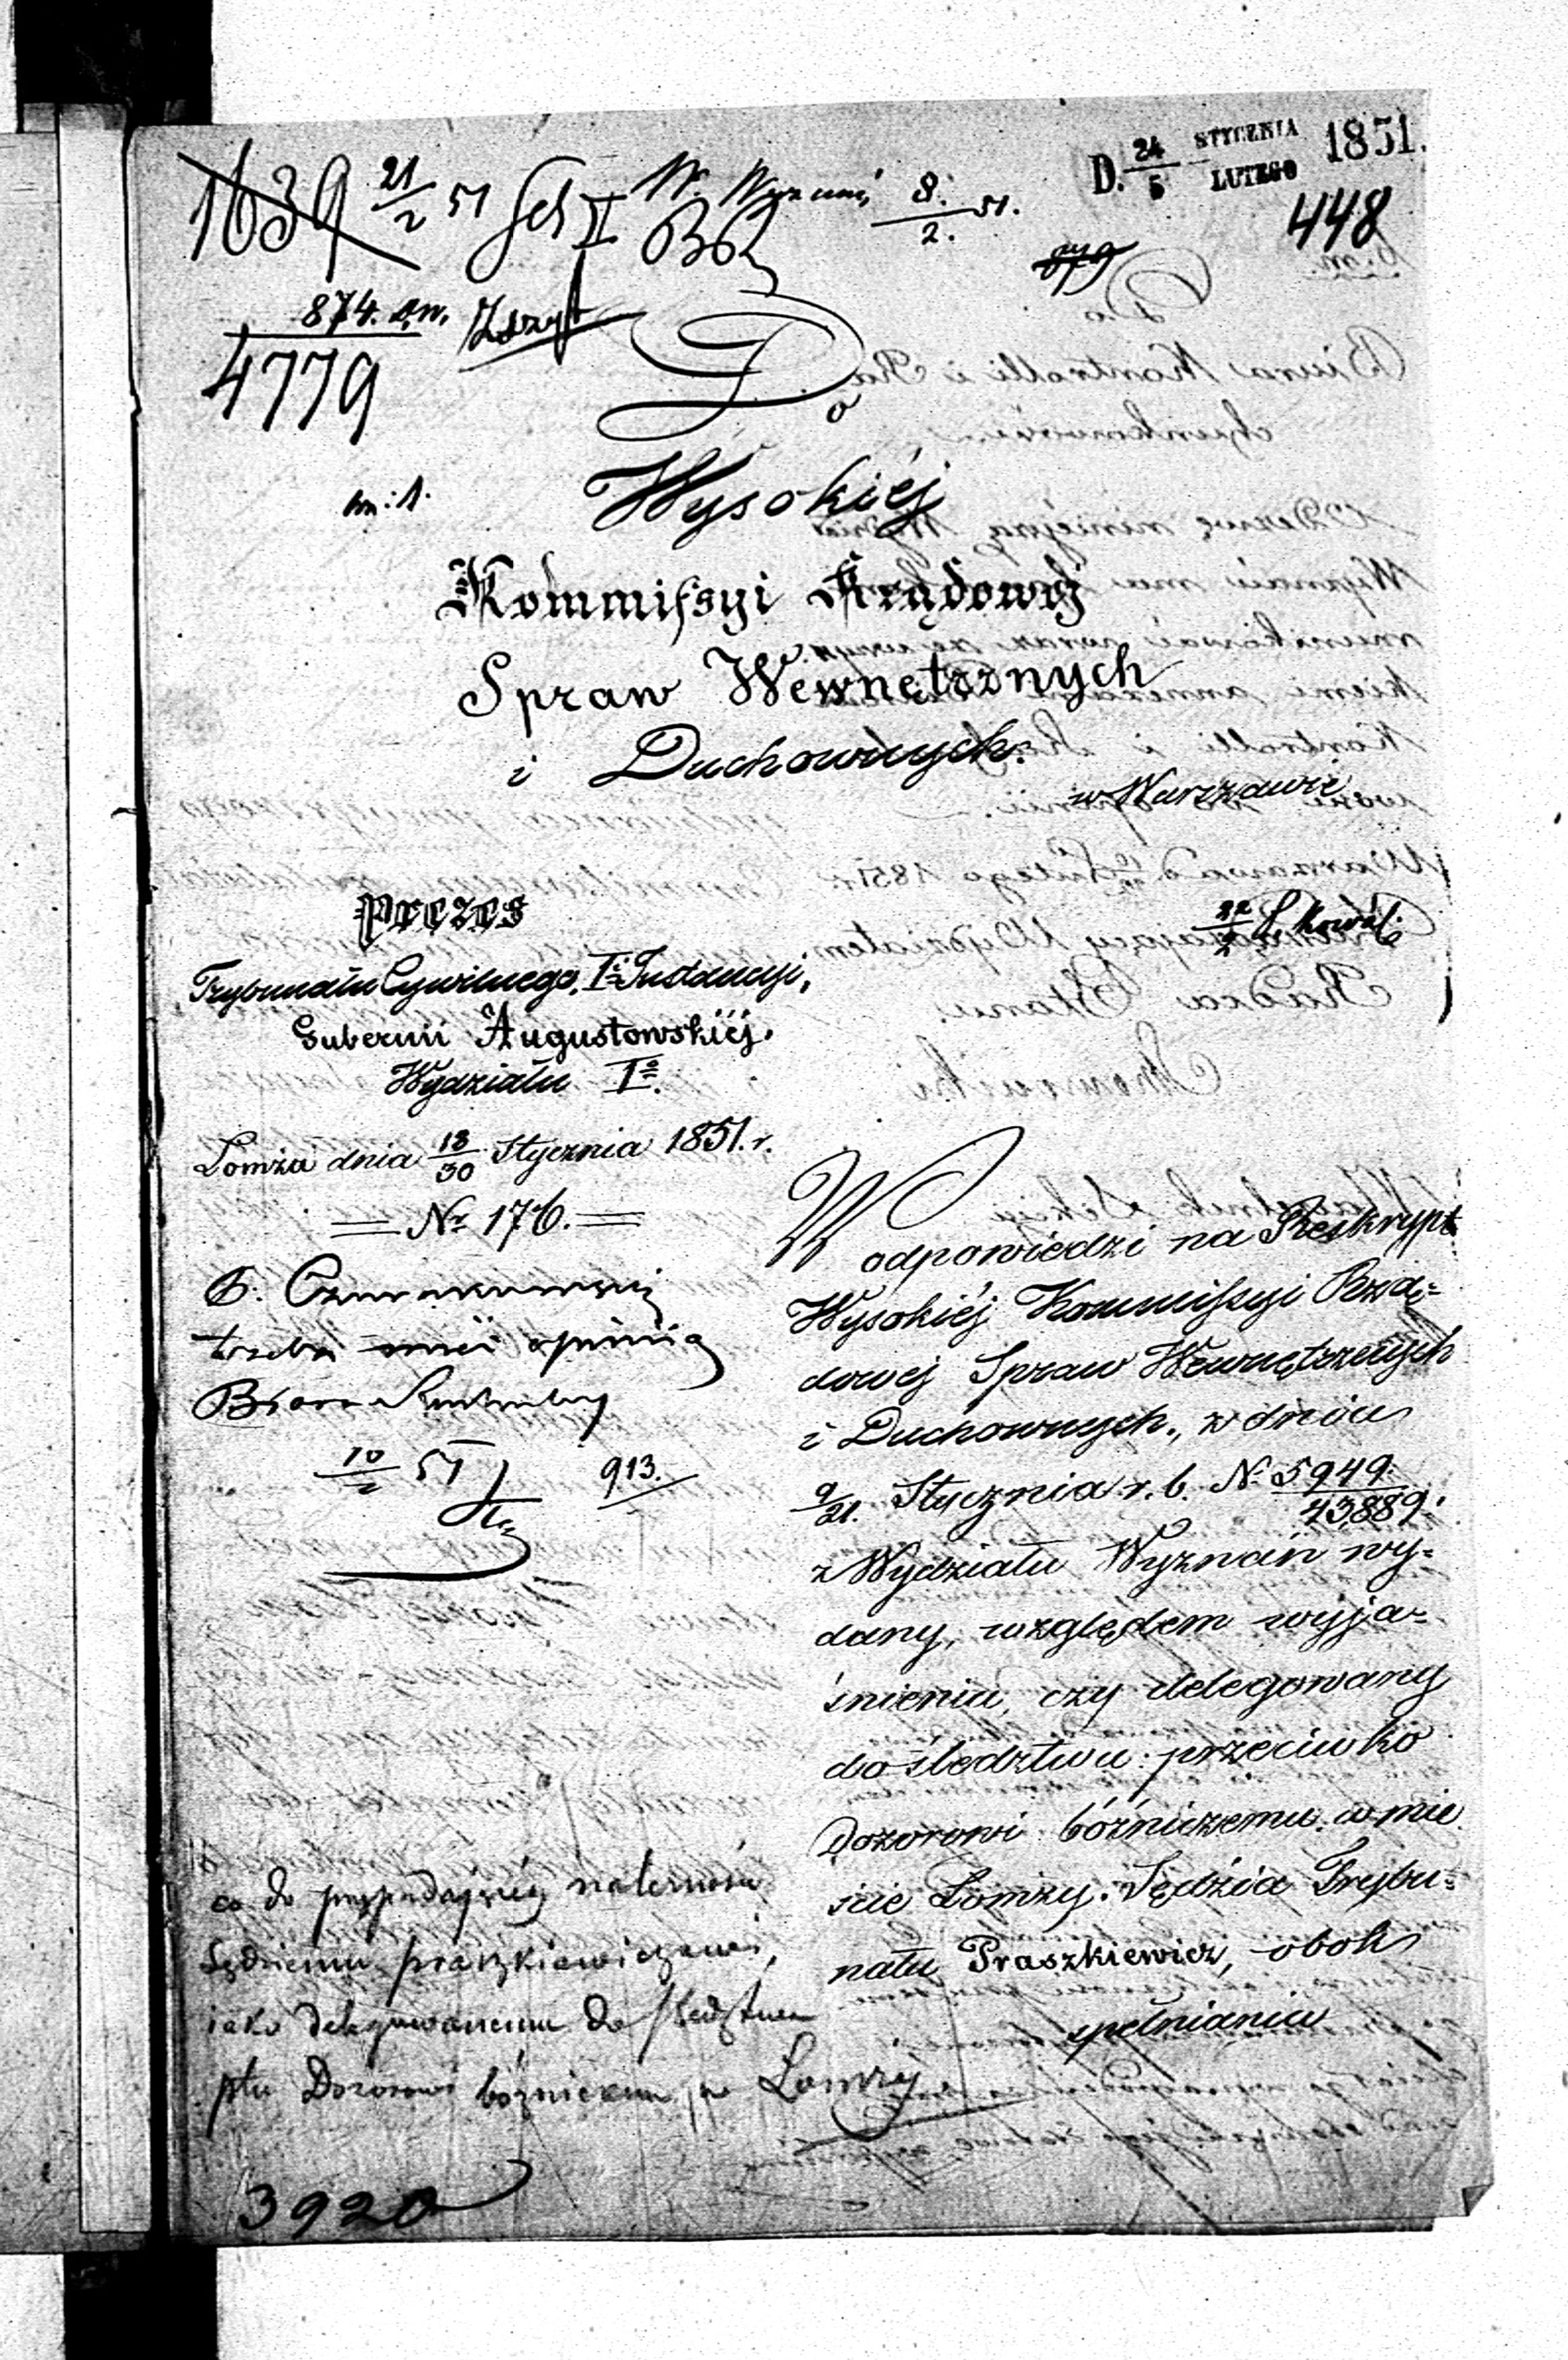 D. 24/5 STYCZNIA/LUTEGO 1851.
1639 21/2 51
8./2. 51.
448
879
874.
4779
Do
Wysokiéj
Kommissyi Rządowéj
Spraw Wewnętrznych
i Duchownych.
w Warszawie
Prezes
Trybunału Cywilnego, Iéj Instancyi,
Gubernii Augustowskiéj.
Wydziału Igo.
Łomża dnia 18/30 Stycznia 1851. r.
Nr 176.
trzeba opinią
10/2 51
913.
W odpowiedzi na Reskrypt
Wysokiéj Kommissyi Rzą=
dowéj Spraw Wewnętrznych
i Duchownych, z dnia
9/21. Stycznia r. b. N. 5949./43,889.
z Wydziału Wyznań wy=
dany, względem wyja=
śnienia, czy delegowany
do śledztwa przeciwko
Dozorowi bóżniczemu w mie
ście Łomży. Sędzia Trybu=
nału Praszkiewicz, obok
spełniania
co do przypadającéj należności
Sędziemu Praszkiewiczowi,
iako delegowanemu do śledztwa
ptu Dozorowi bóżniczemu w Łomży
3920